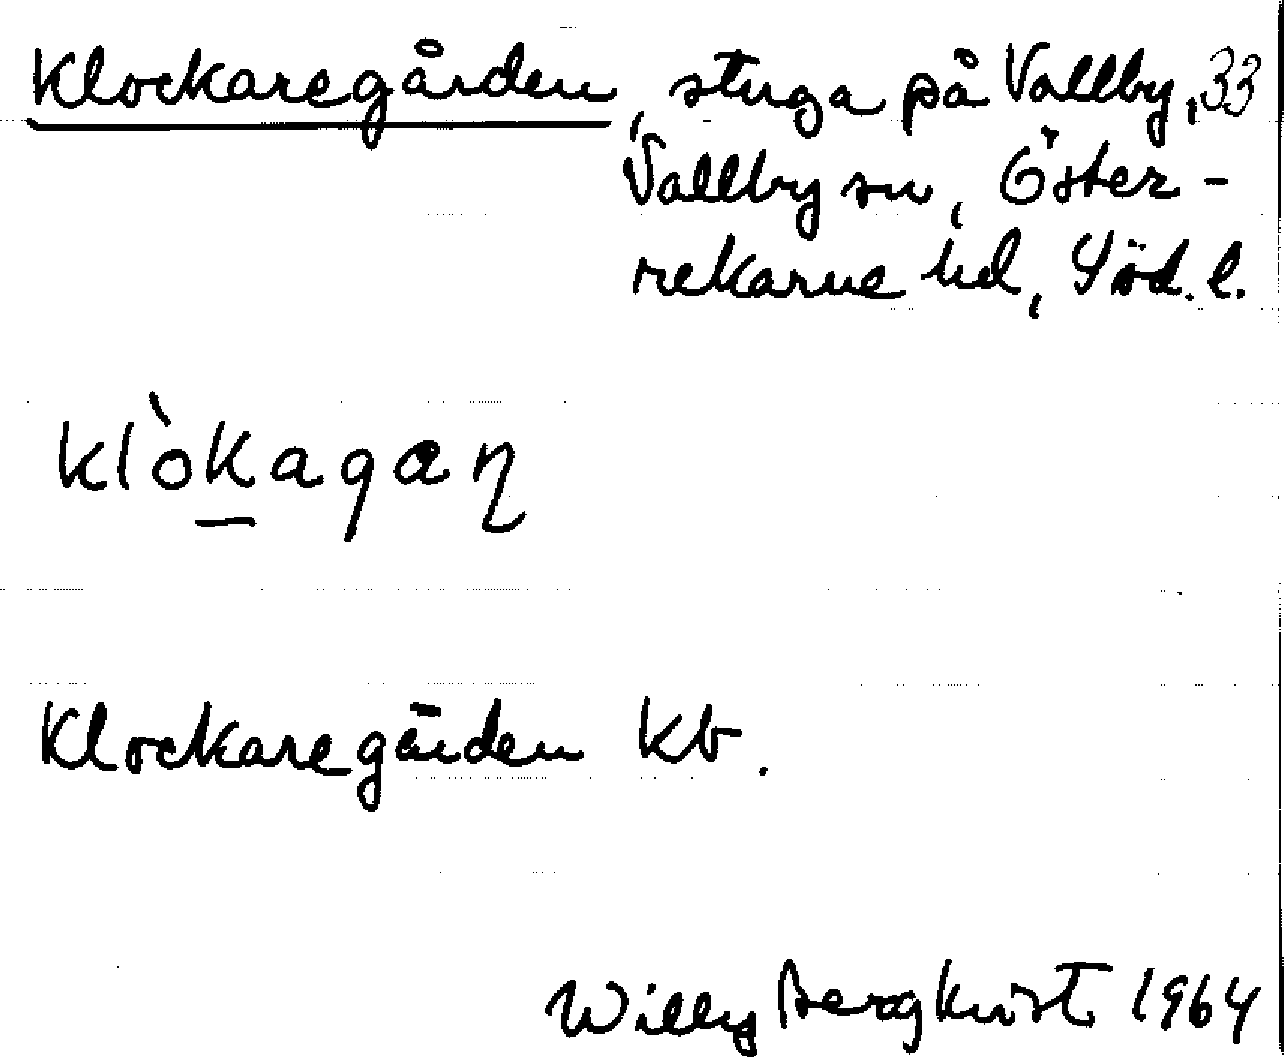 Klockaregården, stuga på Vallby, 33
Vallby sn, Öster-
rekarne hd, Söd. l.
klòkagaɳ
Klockaregården kb.
Willy Bergkvist 1964